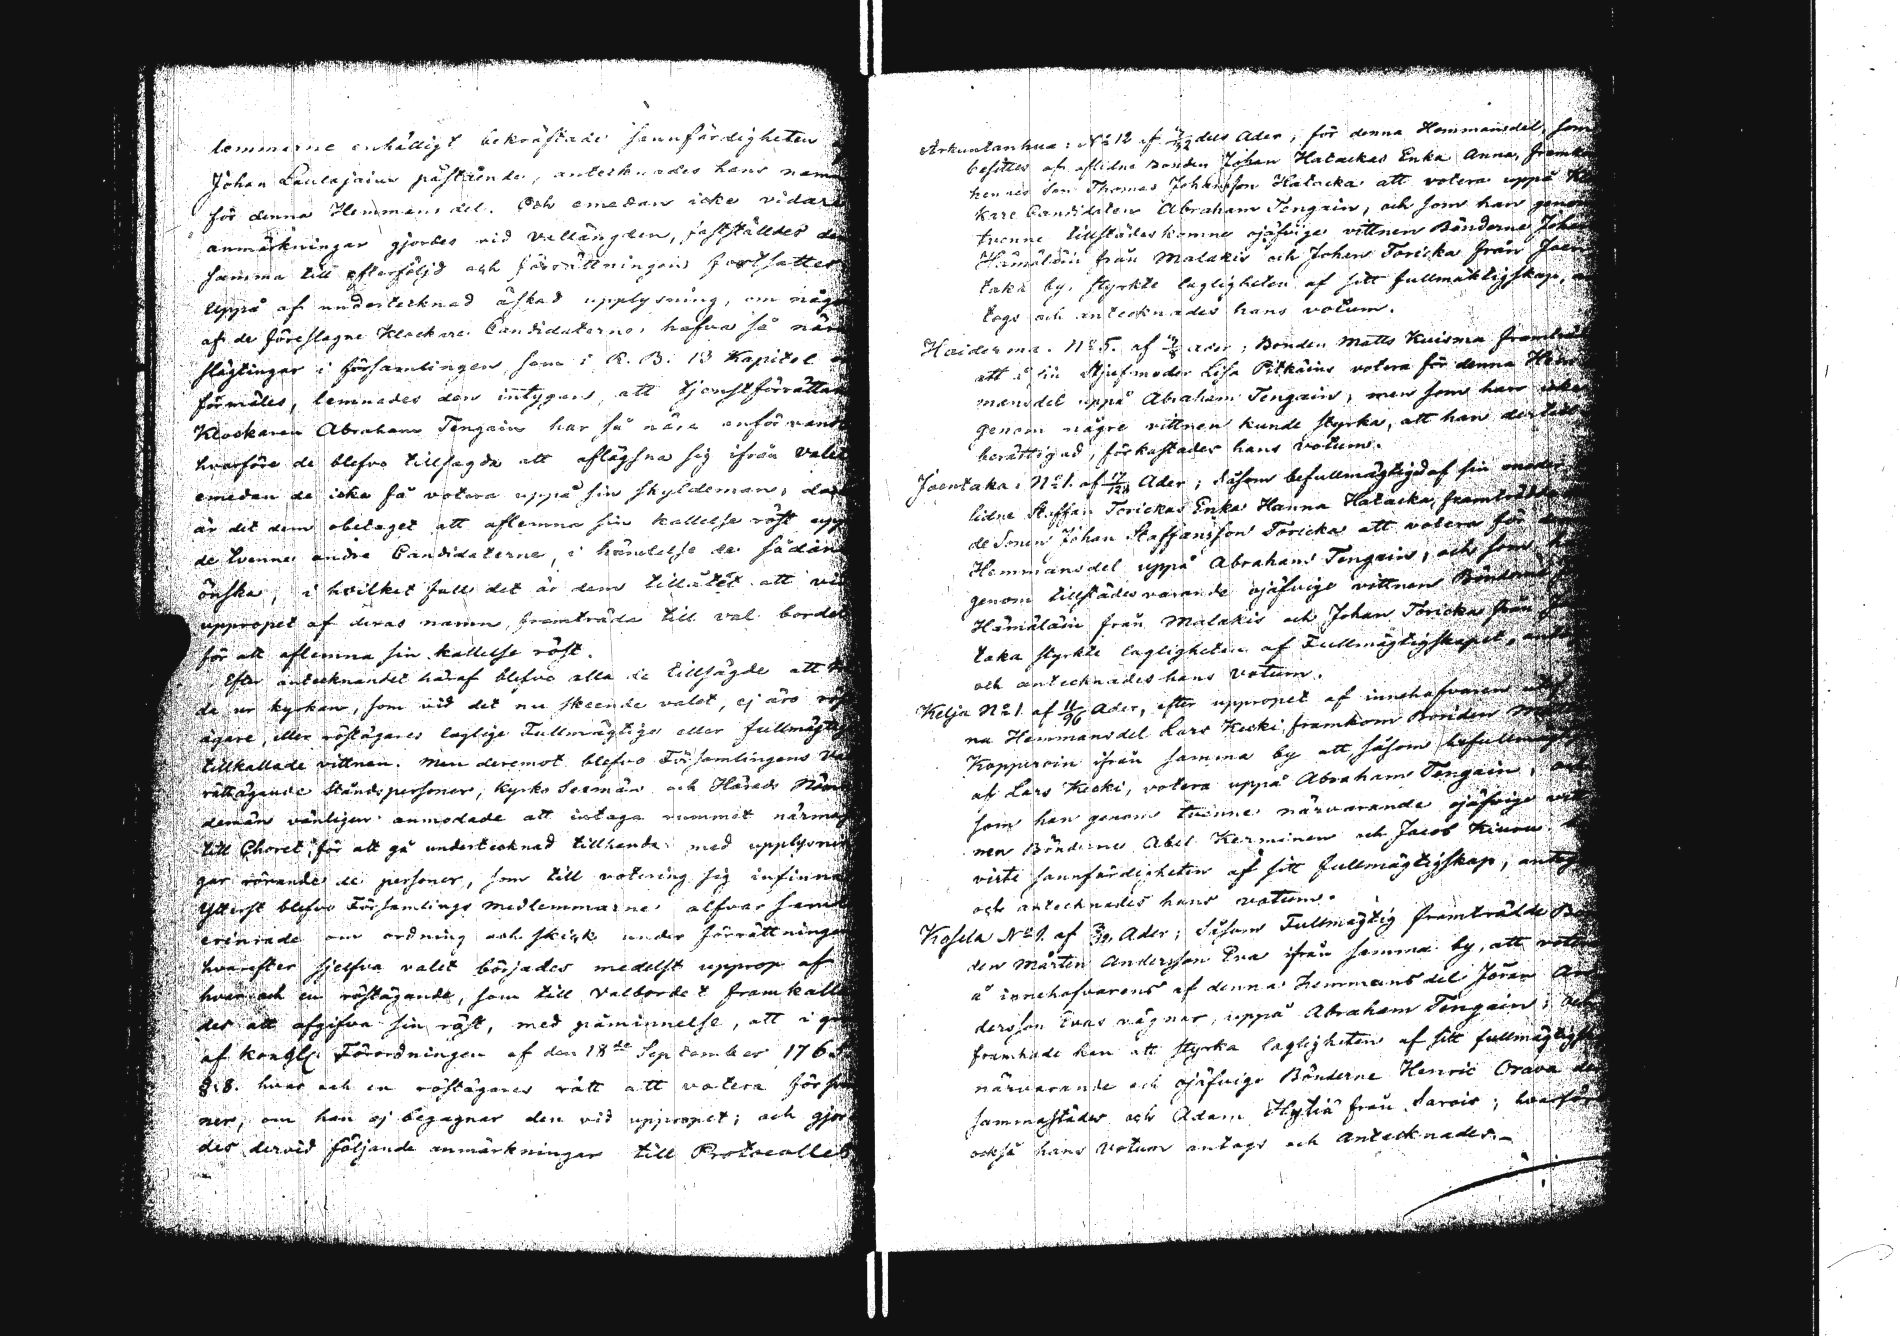 lemmarne enhädigt bekräftade sannfärdigheten
Johan Laulajains påstående, antecknades hans namn
för denna Hemmansdel. Och emedan icke vidare
anmärkningar gjordes vid vallängden, fastställdes den
samma till efterföljd och förrättningen fortsattes
Uppå af undertecknad äskad upplysning, om någ
af de föreslagne Klockare Candidaterne hafva så nära
slägtingar i församlingen som i R. B. 13 Kapitel
förmäles, lemnades den intygan, att tjenstförrättan
Klockaren Abraham Tengain har så nära anförvandt
hvarföre de blefvo tillsagda att aflägsna sig ifrån valet
emedan de icke få votera uppå sin skyldeman; dock
är det dem obetaget att aflemna sin kallelse röst upp
de tvenne andra Candidaterne, i händelse de sådan
önska, i hvilket fall det är dem tillåtet att vid
uppropet af deras namn, framträda till val bordet
för att aflemna sin kallelse röst.
Efter antecknandet häraf blefvo alla de tillsägde att
de ur kyrkan, som vid det nu skeende valet, ej äro rös
ägare, eller röstägares laglige Fullmägtige eller fullmägtig
tillkallade vittnen. Men deremot blefvo Församlingens Va
rättägande Ståndspersoner, Kyrko Sexmän och Härads Näm
demän vänligen anmodade att intaga rummet närmast
till Choret, för att gå undertecknad tillhanda med upplysnin
gar rörande de personer, som till votering sig infinna
Ytterst blefvo Församlings medlemmarne alfvarsamt
erinrade om ordning och skick under förrättningen
hvarefter sjelfva valet börjades medelst upprop af
hvar och en röstägande, som till valbordet framkalla
des att afgifva sin röst, med påminnelse, att i gr
af Kongl. Förordningen af den 18de September 176
§: 8. hvar och en röstägares rätt att votera försvin
ner, om han ej begagnar den vid uppropet; och gjor
des dervid följande anmärkningar till Protocollet
Arkuntanhua: No 12 af 7/32 dels Ader, för denna Hemmansdel, som
besittes af aflidne Bonden Johan Hatackas Enka Anna, framkom
hennes Son Thomas Johansson Hatacka att votera uppå Klo
kare Candidaten Abraham Tengain, och som han genom
tvenne tillstädeskomne ojäfvige vittnen Bönderne Johan
Hämäläin från Malakis och Johan Toricka från Joen
taka by, styrkte lagligheten af sitt fullmäktigskap, an
togs och antecknades hans votum.
Haiderma. No 5. af ader; Bonden Matts Kuisma framträdde
att å sin Stjufmoder Lisa Pitkäins votera för denna Hem
mansdel uppå Abraham Tengain, men som han icke
genom någre vittnen kunde styrka, att han dertill
berättigad, förkastades hans votum.
Joentaka: No 1. af 17/128 Ader; Såsom befullmägtigad af sin moder,
lidne Staffan Torickas Enka Hanna Hatacka, framträdde
de Sonen Johan Staffansson Toricka att votera för denna
Hemmansdel uppå Abraham Tengain, och som han
genom tillstädesvarande ojäfvige vittnen Bönderne
Hämäläin från Malakis och Johan Toricka från Joen
taka styrkte lagligheten af Fullmägtigskapet, antogs
och antecknades hans votum.
Kelja No 1 af 11/96 Ader, efter uppropet af innehafvaren utaf
na Hemmansdel Lars Kecki, framkom Bonden
Kopperoin ifrån samma by att såsom befullmägtigad
af Lars Kecki, votera uppå Abraham Tengain, och
som han genom tvenne närvarande ojäfvige vitt
nen Bönderne Abel Kerminen och Jacob Kiuru
viste sannfärdigheten af sitt fullmägtigskap, antogs
och antecknades hans votum.
Kosela No 1. af Ader; Såsom Fullmägtig framträdde Bon
den Mårten Andersson Eva ifrån samma by, att votera
å innehafvarens af denna Hemmansdel Jöran An
dersson Evas vägnar, uppå Abraham Tengain;
framhade han att styrka lagligheten af sitt fullmägtigskap
närvarande och ojäfvige Bönderne Henric Orava
sammastädes och Adam Hytiä från Sarois; hvarföre
också hans Votum antogs och antecknades.